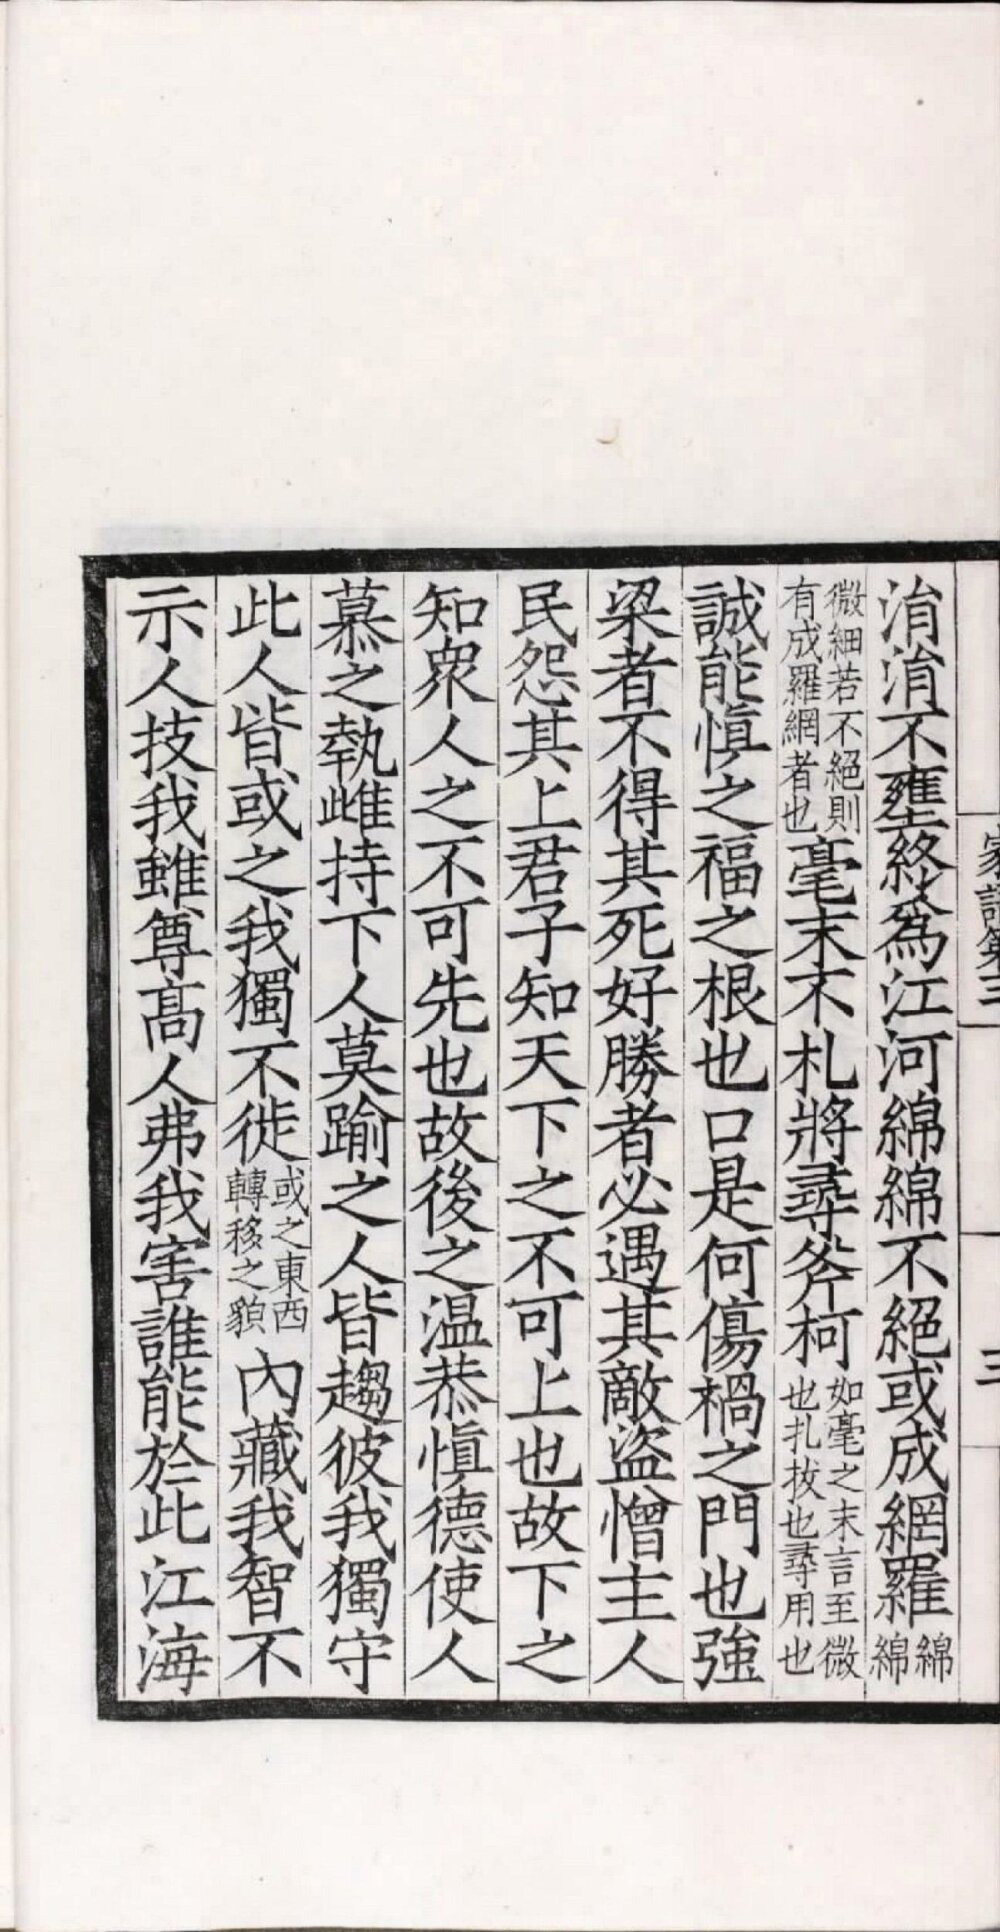 家語第三
三
涓涓不壅終爲江河綿綿不絕或成網羅綿綿
微細若不絕則有成羅網者也毫末不札將尋斧柯如毫之末言至微也扎拔也尋用也
誠能慎之福之根也口是何傷禍之門也強
梁者不得其死好勝者必遇其敵盜憎主人
民怨其上君子知天下之不可上也故下之
知衆人之不可先也故後之温恭慎德使人
慕之執雌持下人莫踰之人皆趨彼我獨守
此人皆或之我獨不徙或之東西轉移之貌內藏我智不
示人技我雖尊髙人弗我害誰能於此江海